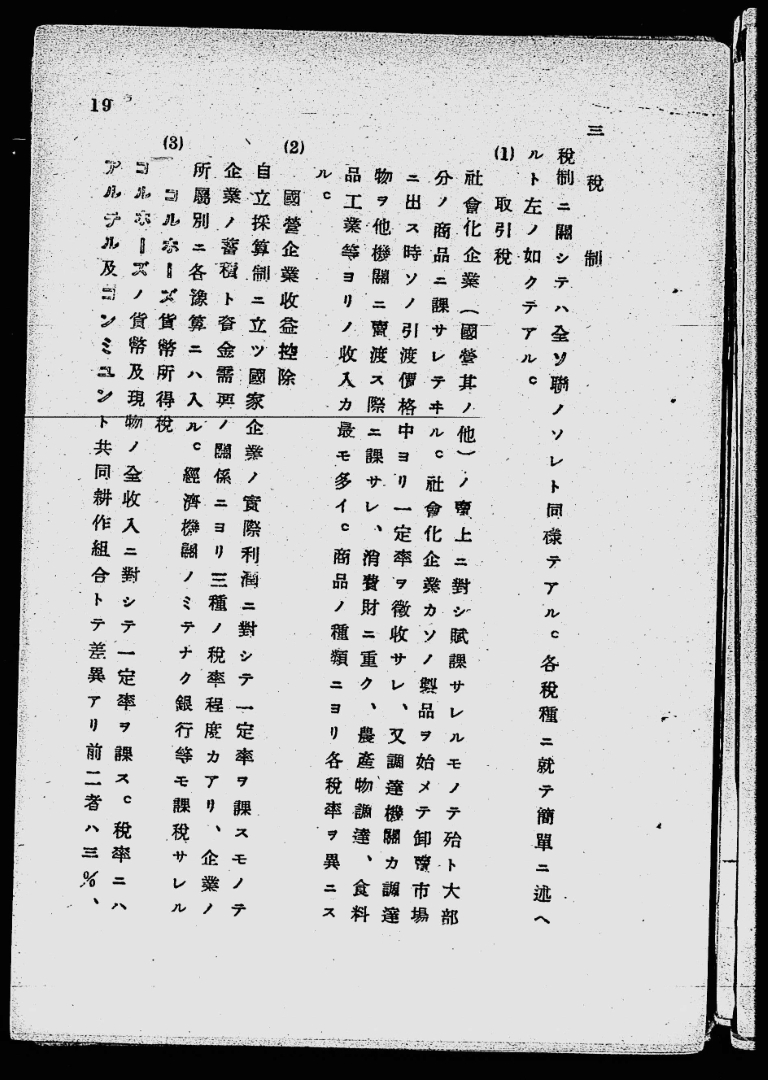 19
三 税 制
税制ニ關シテハ全ソ聯ノソレト同樣テアル。各税種ニ就テ簡單ニ述ヘ
ルト左ノ如クテアル。
(1) 取引税
社會化企業(國營其ノ他)ノ賣上ニ對シ賦課サレルモノテ殆ト大部
分ノ商品ニ課サレテヰル。社會化企業カソノ製品ヲ始メテ卸賣市場
ニ出ス時ソノ引渡價格中ヨリ一定率ヲ徴收サレ、又調達機關カ調達
物ヲ他機關ニ賣渡ス際ニ課サレ、消費財ニ重ク、農產物調達、食料
品工業等ヨリノ收入カ最モ多イ。商品ノ種類ニヨリ各税率ヲ異ニス
ル。
(2) 國營企業收益控除
自立採算制ニ立ツ國家企業ノ實際利潤ニ對シテ一定率ヲ課スモノテ
企業ノ蓄積ト資金需要ノ關係ニヨリ三種ノ税率程度カアリ、企業ノ
所屬別ニ各豫算ニハ入ル。經濟機關ノミテナク銀行等モ課税サレル
(3) コルホーズ貨幣所得税
コルホーズノ貨幣及現物ノ全收入ニ對シテ一定率ヲ課ス。税率ニハ
アルテル及コンミユント共同耕作組合トテ差異アリ前二者ハ三%、